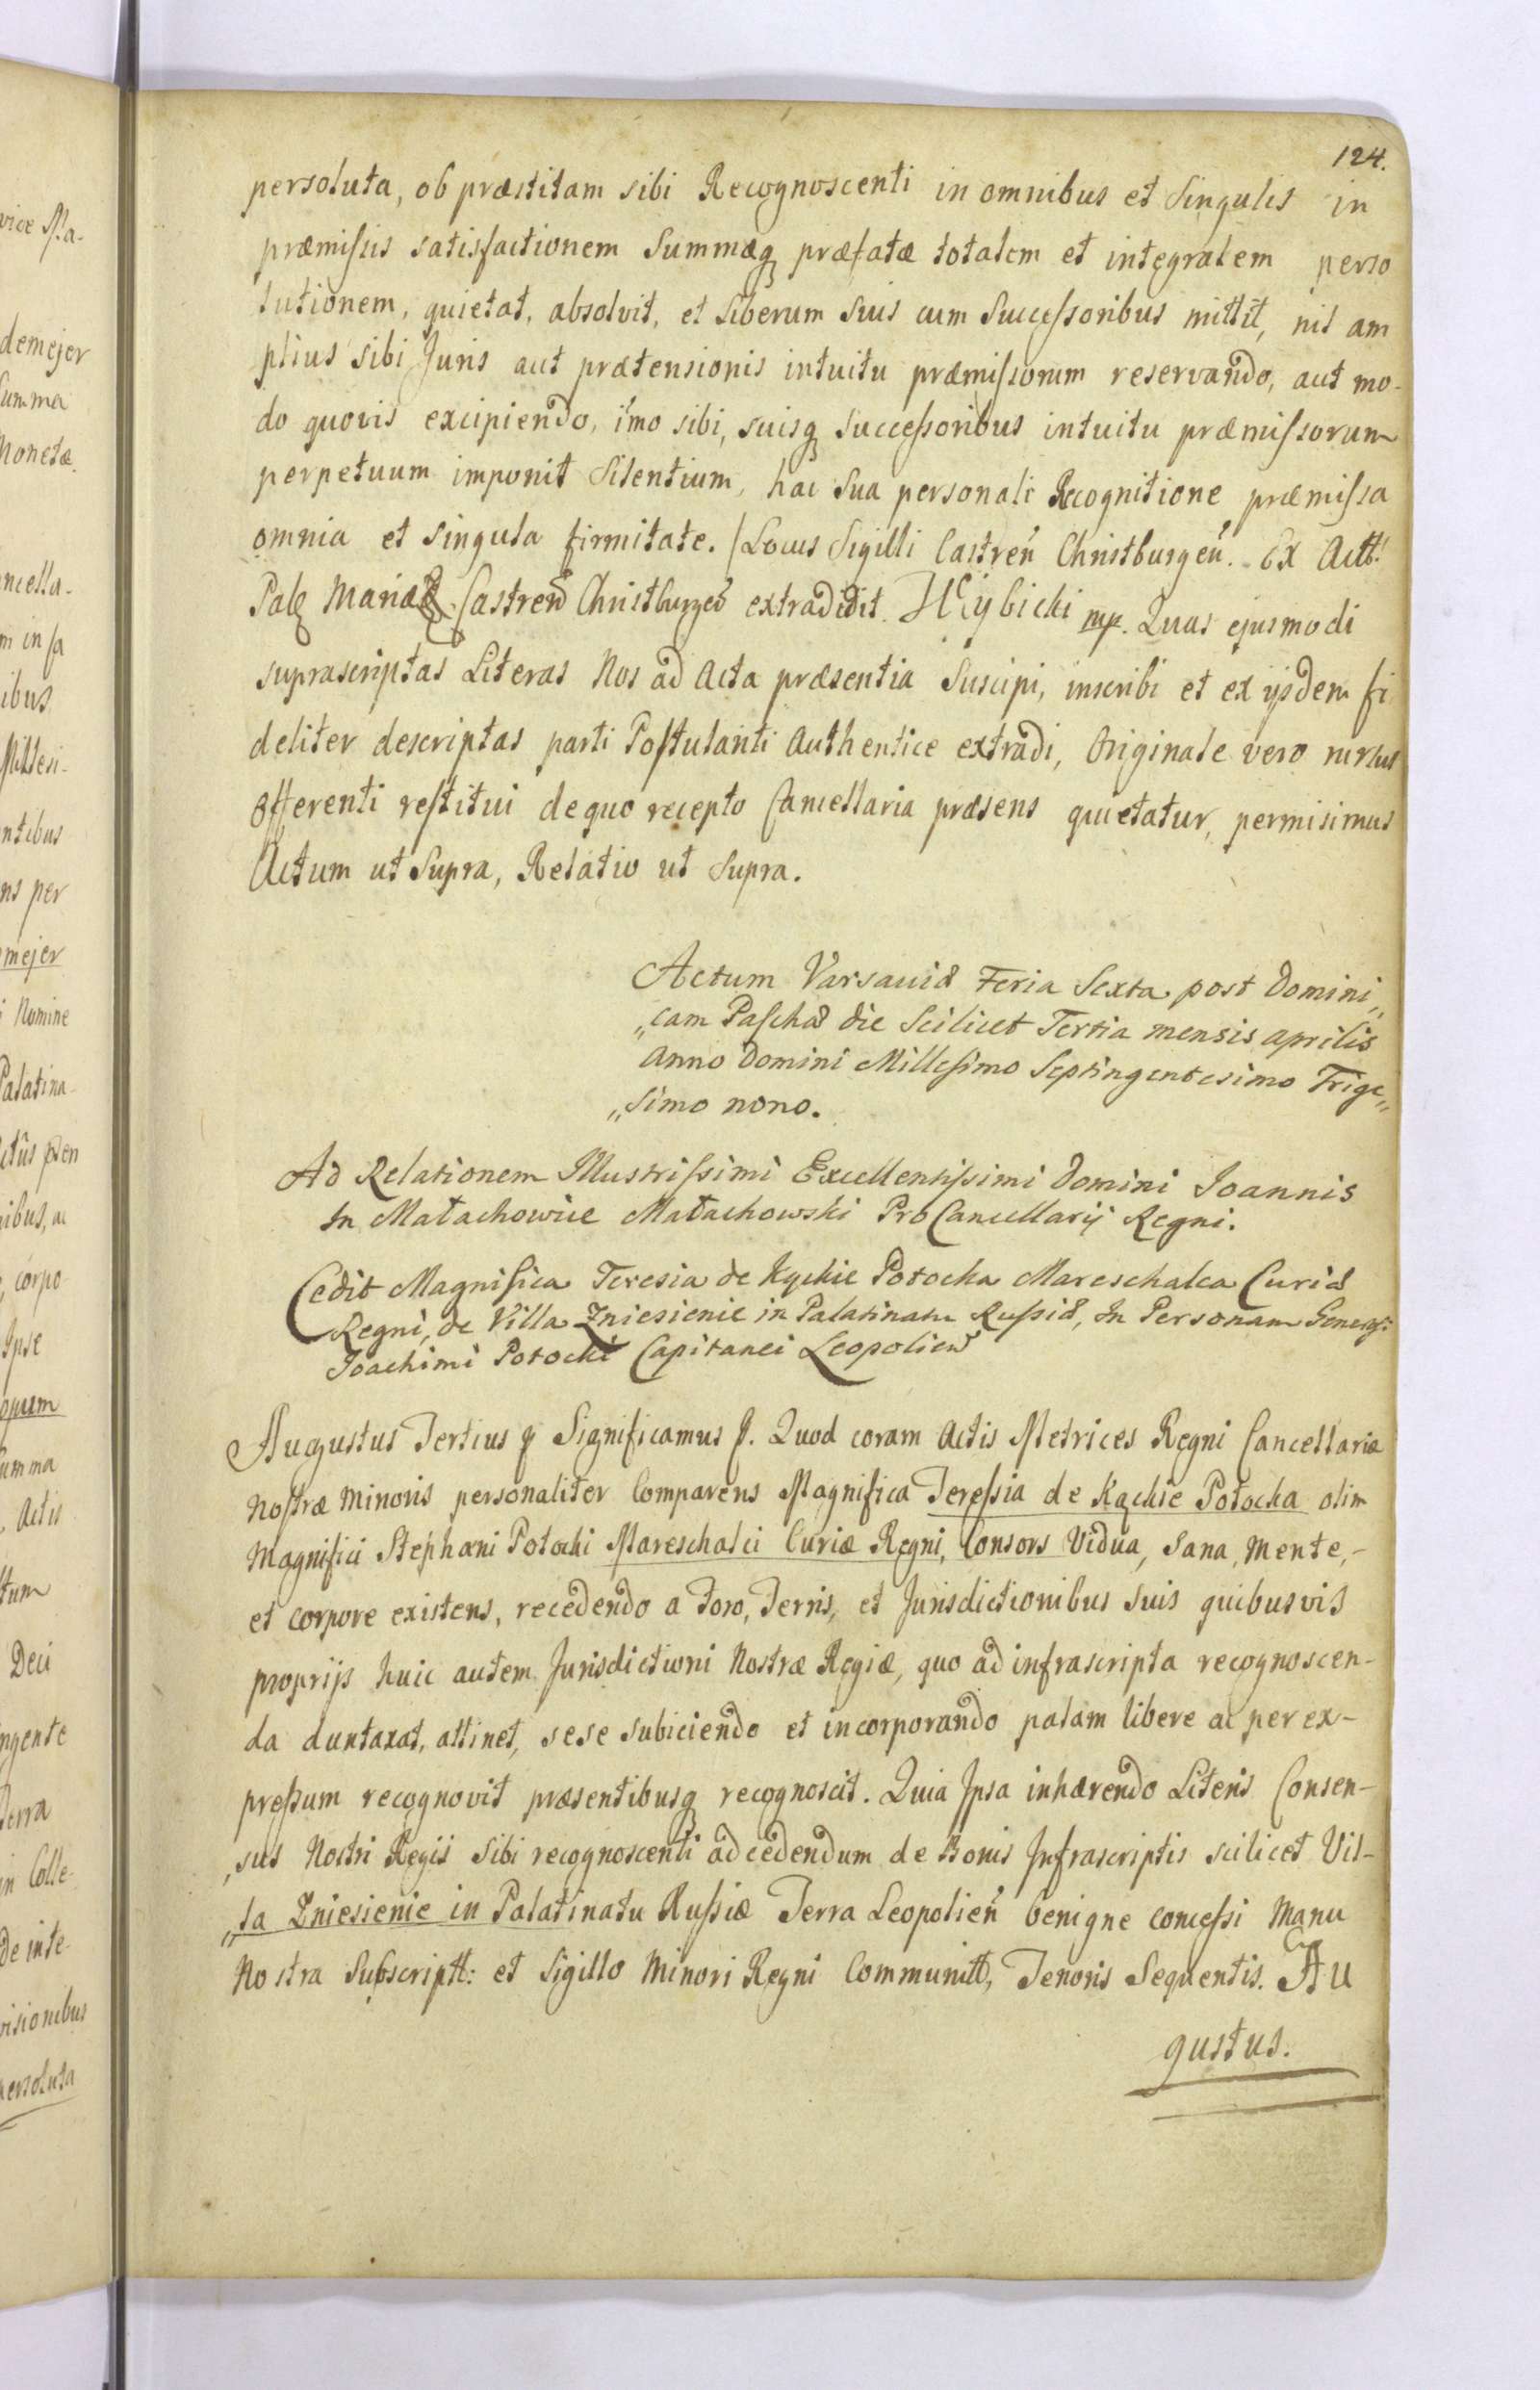 124.
persoluta, ob præstitam sibi Recognoscenti in omnibus et Singulis in
præmissis satisfactionem Summæq præfatæ totalem et integralem perso
lutionem, quietat, absolvit, et liberum Suis cum Successoribus mittit, nil am
plius sibi Juris aut prætensionis intuitu præmissorum reservando, aut mo-
do quovis excipiendo, imo sibi, suisq Successoribus intuitu præmissorum
perpetuum imponit Silentium, hac Sua personali Recognitione præmissa
omnia et Singula firmitate. /Locus Sigilli Castreñ Christburgeñ. Ex Actt:
Castreñ Christburgeñ extradidit. mp. Quas ejusmodi
suprascriptas Literas Nos ad Acta præsentia Suscipi, inscribi et ex ijsdem fi
deliter descriptas parti Postulanti Authentice extradi, Originale vero rursus
Offerenti restitui de quo recepto Cancellaria præsens quietatur, permisimus
Actum ut Supra, Relatio ut Supra.
Actum Varsaviæ Feria Sexta post Domini„
„cam Paschæ die Scilicet Tertia mensis aprilis
Anno Domini Millesimo Septingentesimo Trige„
„simo nono.
Ad Relationem Illustrissimi Excellentissimi Domini Joannis
In Małachowice Małachowski ProCancellarij Regni.
Cedit Magnifica Teresia de Kąckie Potocka Mareschalca Curiæ
Regni, de Villa Zniesienie in Palatinatu Russiæ, In Personam Generosi
Joachimi Potocki Capitanei Leopolieñ
Augustus Tertius Significamus Quod coram Actis Metrices Regni Cancellariæ
Nostræ Minoris personaliter Comparens Magnifica Teressia de Kąckie Potocka olim
Magnifici Stephani Potocki Mareschalci Curiæ Regni, Consors Vidua, Sana, Mente,-
et corpore existens, recedendo a Foro, Terris, et Jurisdictionibus Suis quibusvis
proprijs huic autem Jurisdictioni Nostræ Regiæ, quo ad infrascripta recognoscen-
da duntaxat, attinet, sese subiciendo et incorporando palam libere ac per ex-
pressum recognovit præsentibusq recognoscit. Quia Ipsa inhærendo Literis Consen-
„sus Nostri Regii Sibi recognoscenti ad cedendum de Bonis Infrascriptis scilicet Vil-
„la Zniesienie in Palatinatu Russiæ Terra Leopolieñ benigne concessi Manu
Nostra Subscriptt: et Sigillo Minori Regni Communitt, Tenoris Sequentis. Au
gustus.